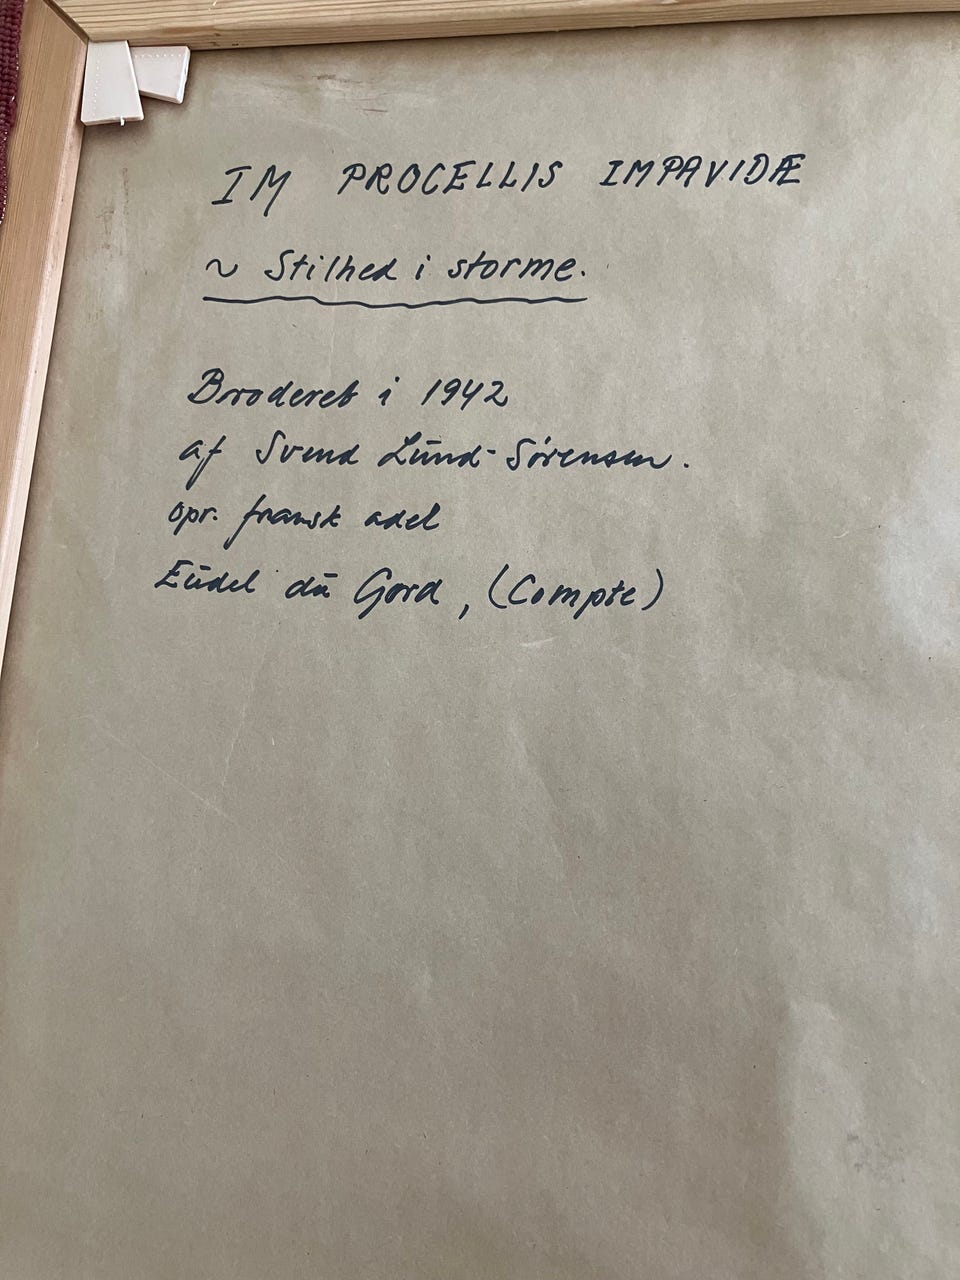 IM PROCELLIS IMPAVIDÆ
~ Stilhed i storme.
Broderet i 1942
af Svend Lund-Sørensen.
opr. fransk adel
Eudel du Gord, (Compte)